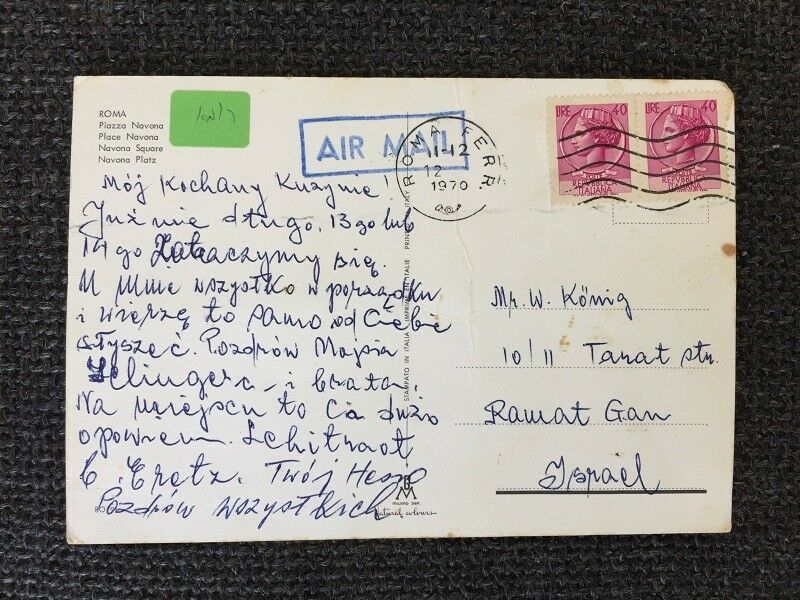 ROMA
Piazza Navona
Place Navona
Navona Square
Navona Platz
AIR MAIL
ROMA FERR.
11-12
12
1970
LIRE 40
POSTE REPUBBLICA ITALIANA
LIRE 40
POSTE REPUBBLICA ITALIANA
Mój Kochany Kuzynie!
Już nie długo, 13go lub
14go Zobaczymy się.
U mnie wszystko w porządku
i wierzę to samo od Ciebie
słyszeć. Pozdrów Majsia
i brata.
Na miejscu to Ci dużo
opowiem. Lehitraot
b. Eretz. Twój Hesio
Pozdrów wszystkich
STAMPATO IN ITALIA
Mr. W. König
10/11 Tanat str.
Ramat Gan
Israel
MILANO DEP.
Natural colours